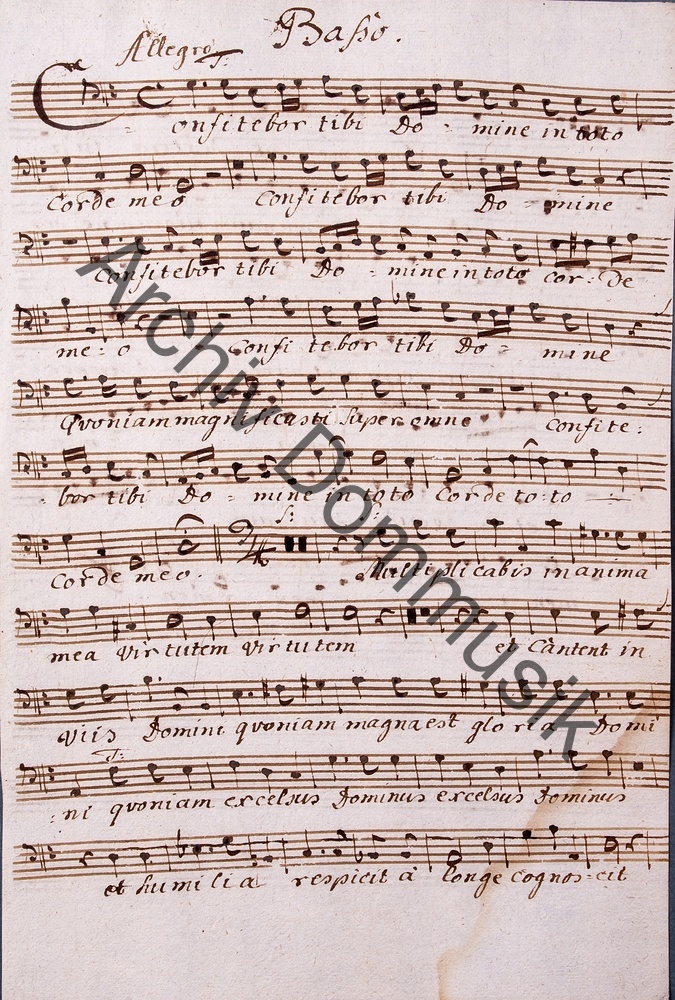 Basso.
Allegro
Confitebor tibi Do - mine in toto
Corde meo Confitebor tibi Do - mine
Confitebor tibi Do - mine in toto cor - de
me - o Confi tebor tibi Do - mine
Qvoniam magnificasti super omne Confite:
- bor tibi Do - mine in toto Corde to - to
Corde meo. Multiplicabis in anima
mea virtutem virtutem et Cantent in
viis Domini qvoniam magna est gloria Domi
- ni qvoniam excelsus Dominus excelsus Dominus
et humilia respicit à longe cognos - cit
Archiv Dommusik